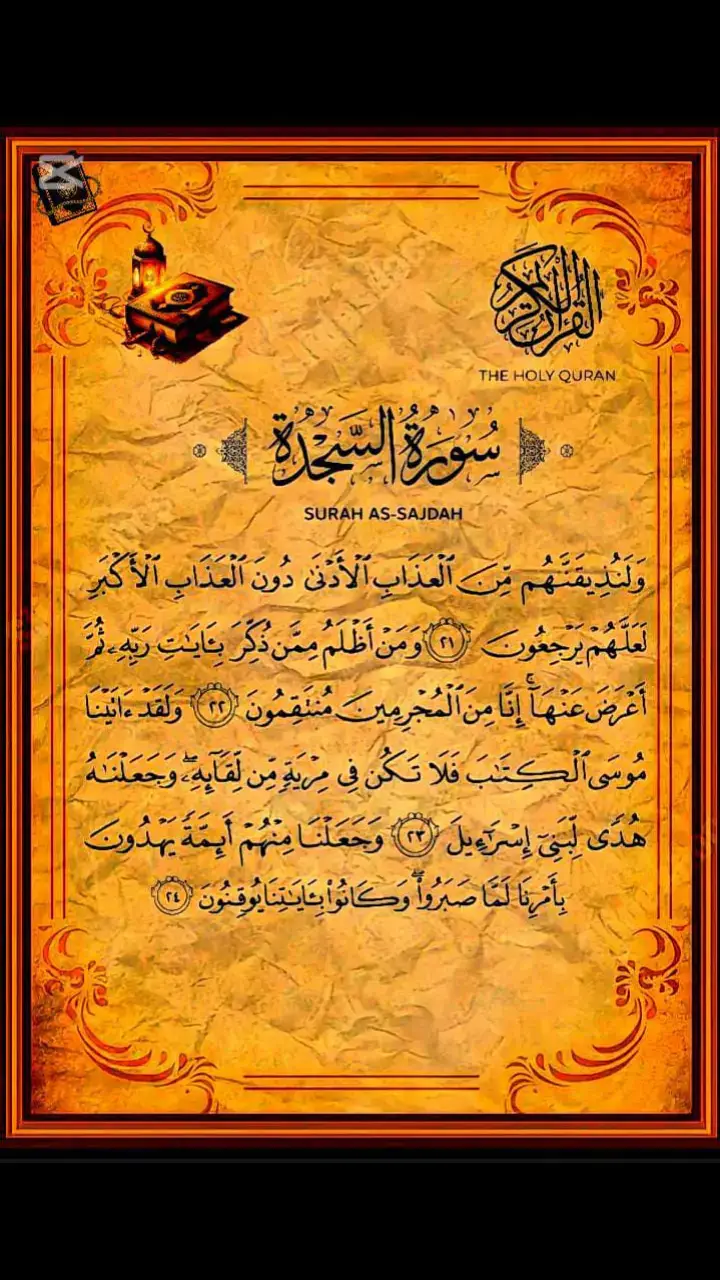 القرآن الكريم
THE HOLY QURAN
سُورَةُ السَّجْدَةِ
SURAH AS-SAJDAH
وَلَنُذِيقَنَّهُم مِّنَ ٱلْعَذَابِ ٱلْأَدْنَىٰ دُونَ ٱلْعَذَابِ ٱلْأَكْبَرِ
لَعَلَّهُمْ يَرْجِعُونَ ٢١ وَمَنْ أَظْلَمُ مِمَّن ذُكِّرَ بِـَٔايَـٰتِ رَبِّهِۦ ثُمَّ
أَعْرَضَ عَنْهَآ ۚ إِنَّا مِنَ ٱلْمُجْرِمِينَ مُنتَقِمُونَ ٢٢ وَلَقَدْ ءَاتَيْنَا
مُوسَى ٱلْكِتَـٰبَ فَلَا تَكُن فِى مِرْيَةٍ مِّن لِّقَآئِهِۦ ۖ وَجَعَلْنَـٰهُ
هُدًى لِّبَنِىٓ إِسْرَٰٓءِيلَ ٢٣ وَجَعَلْنَا مِنْهُمْ أَئِمَّةً يَهْدُونَ
بِأَمْرِنَا لَمَّا صَبَرُوا۟ ۖ وَكَانُوا۟ بِـَٔايَـٰتِنَا يُوقِنُونَ ٢٤